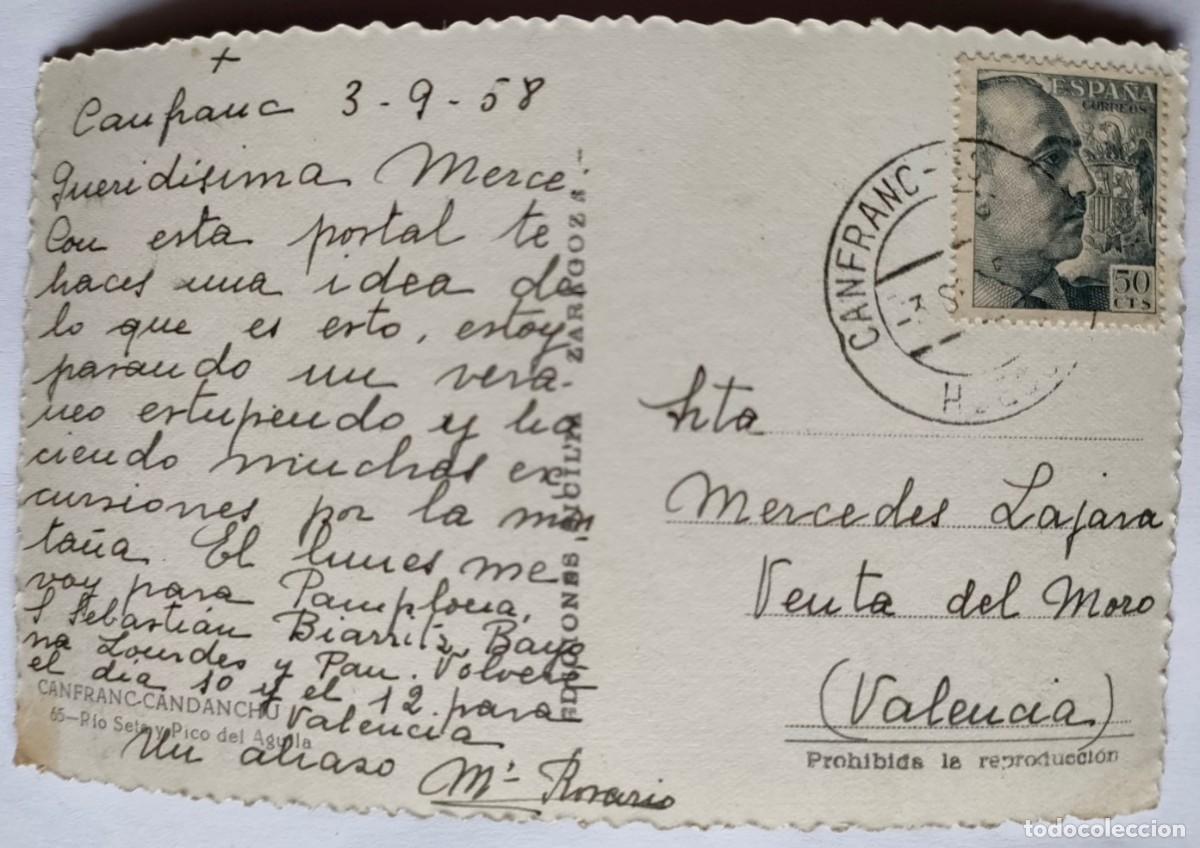 +
Canfranc 3-9-58
Queridisima Merce.
Con esta postal te
haces una idea de
lo que es esto, estoy
pasando un vera-
neo estupendo y ha
ciendo muchas ex
cursiones por la mon
taña. El lunes me
voy para Pamplona,
S Sebastián Biarritz, Bayo
na Lourdes y Pau. Volveré
el dia 10 y el 12 para
Valencia
Un abraso
Mª Rosario
CANFRANC-CANDANCHÚ
65-Río Seta y Pico del Aguila
EDICIONES SICILIA ZARAGOZA
ESPAÑA
CORREOS
50
CTS
CANFRANC-
3 S
Srta
Mercedes Lajara
Venta del Moro
(Valencia)
Prohibida la reproducción
todocoleccion